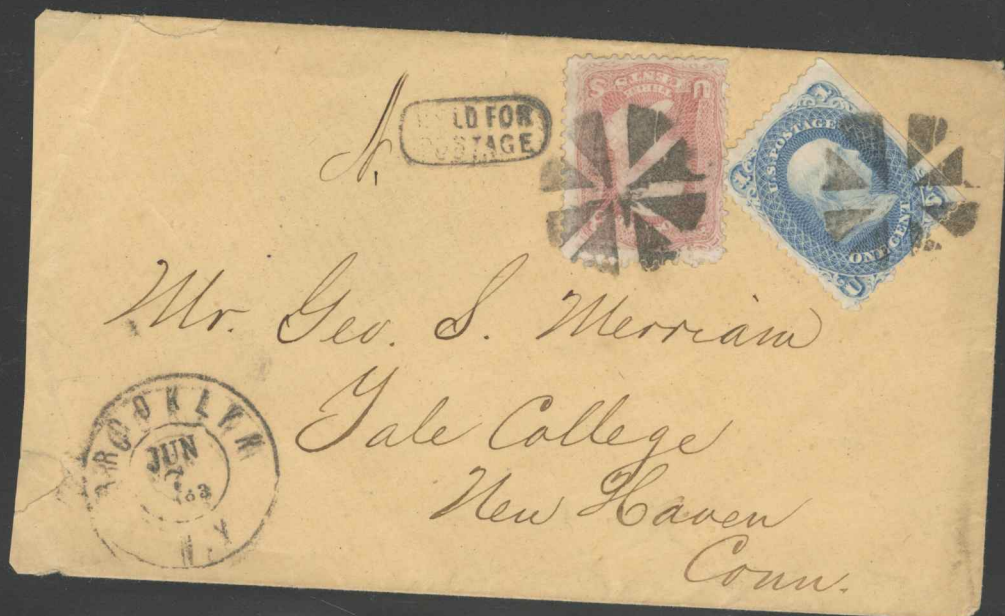 HELD FOR
POSTAGE
U S
THREE
U.S. POSTAGE
ONE CENT
Mr. Geo. S. Merriam
Yale College
New Haven
Conn.
BROOKLYN
JUN
63
N.Y